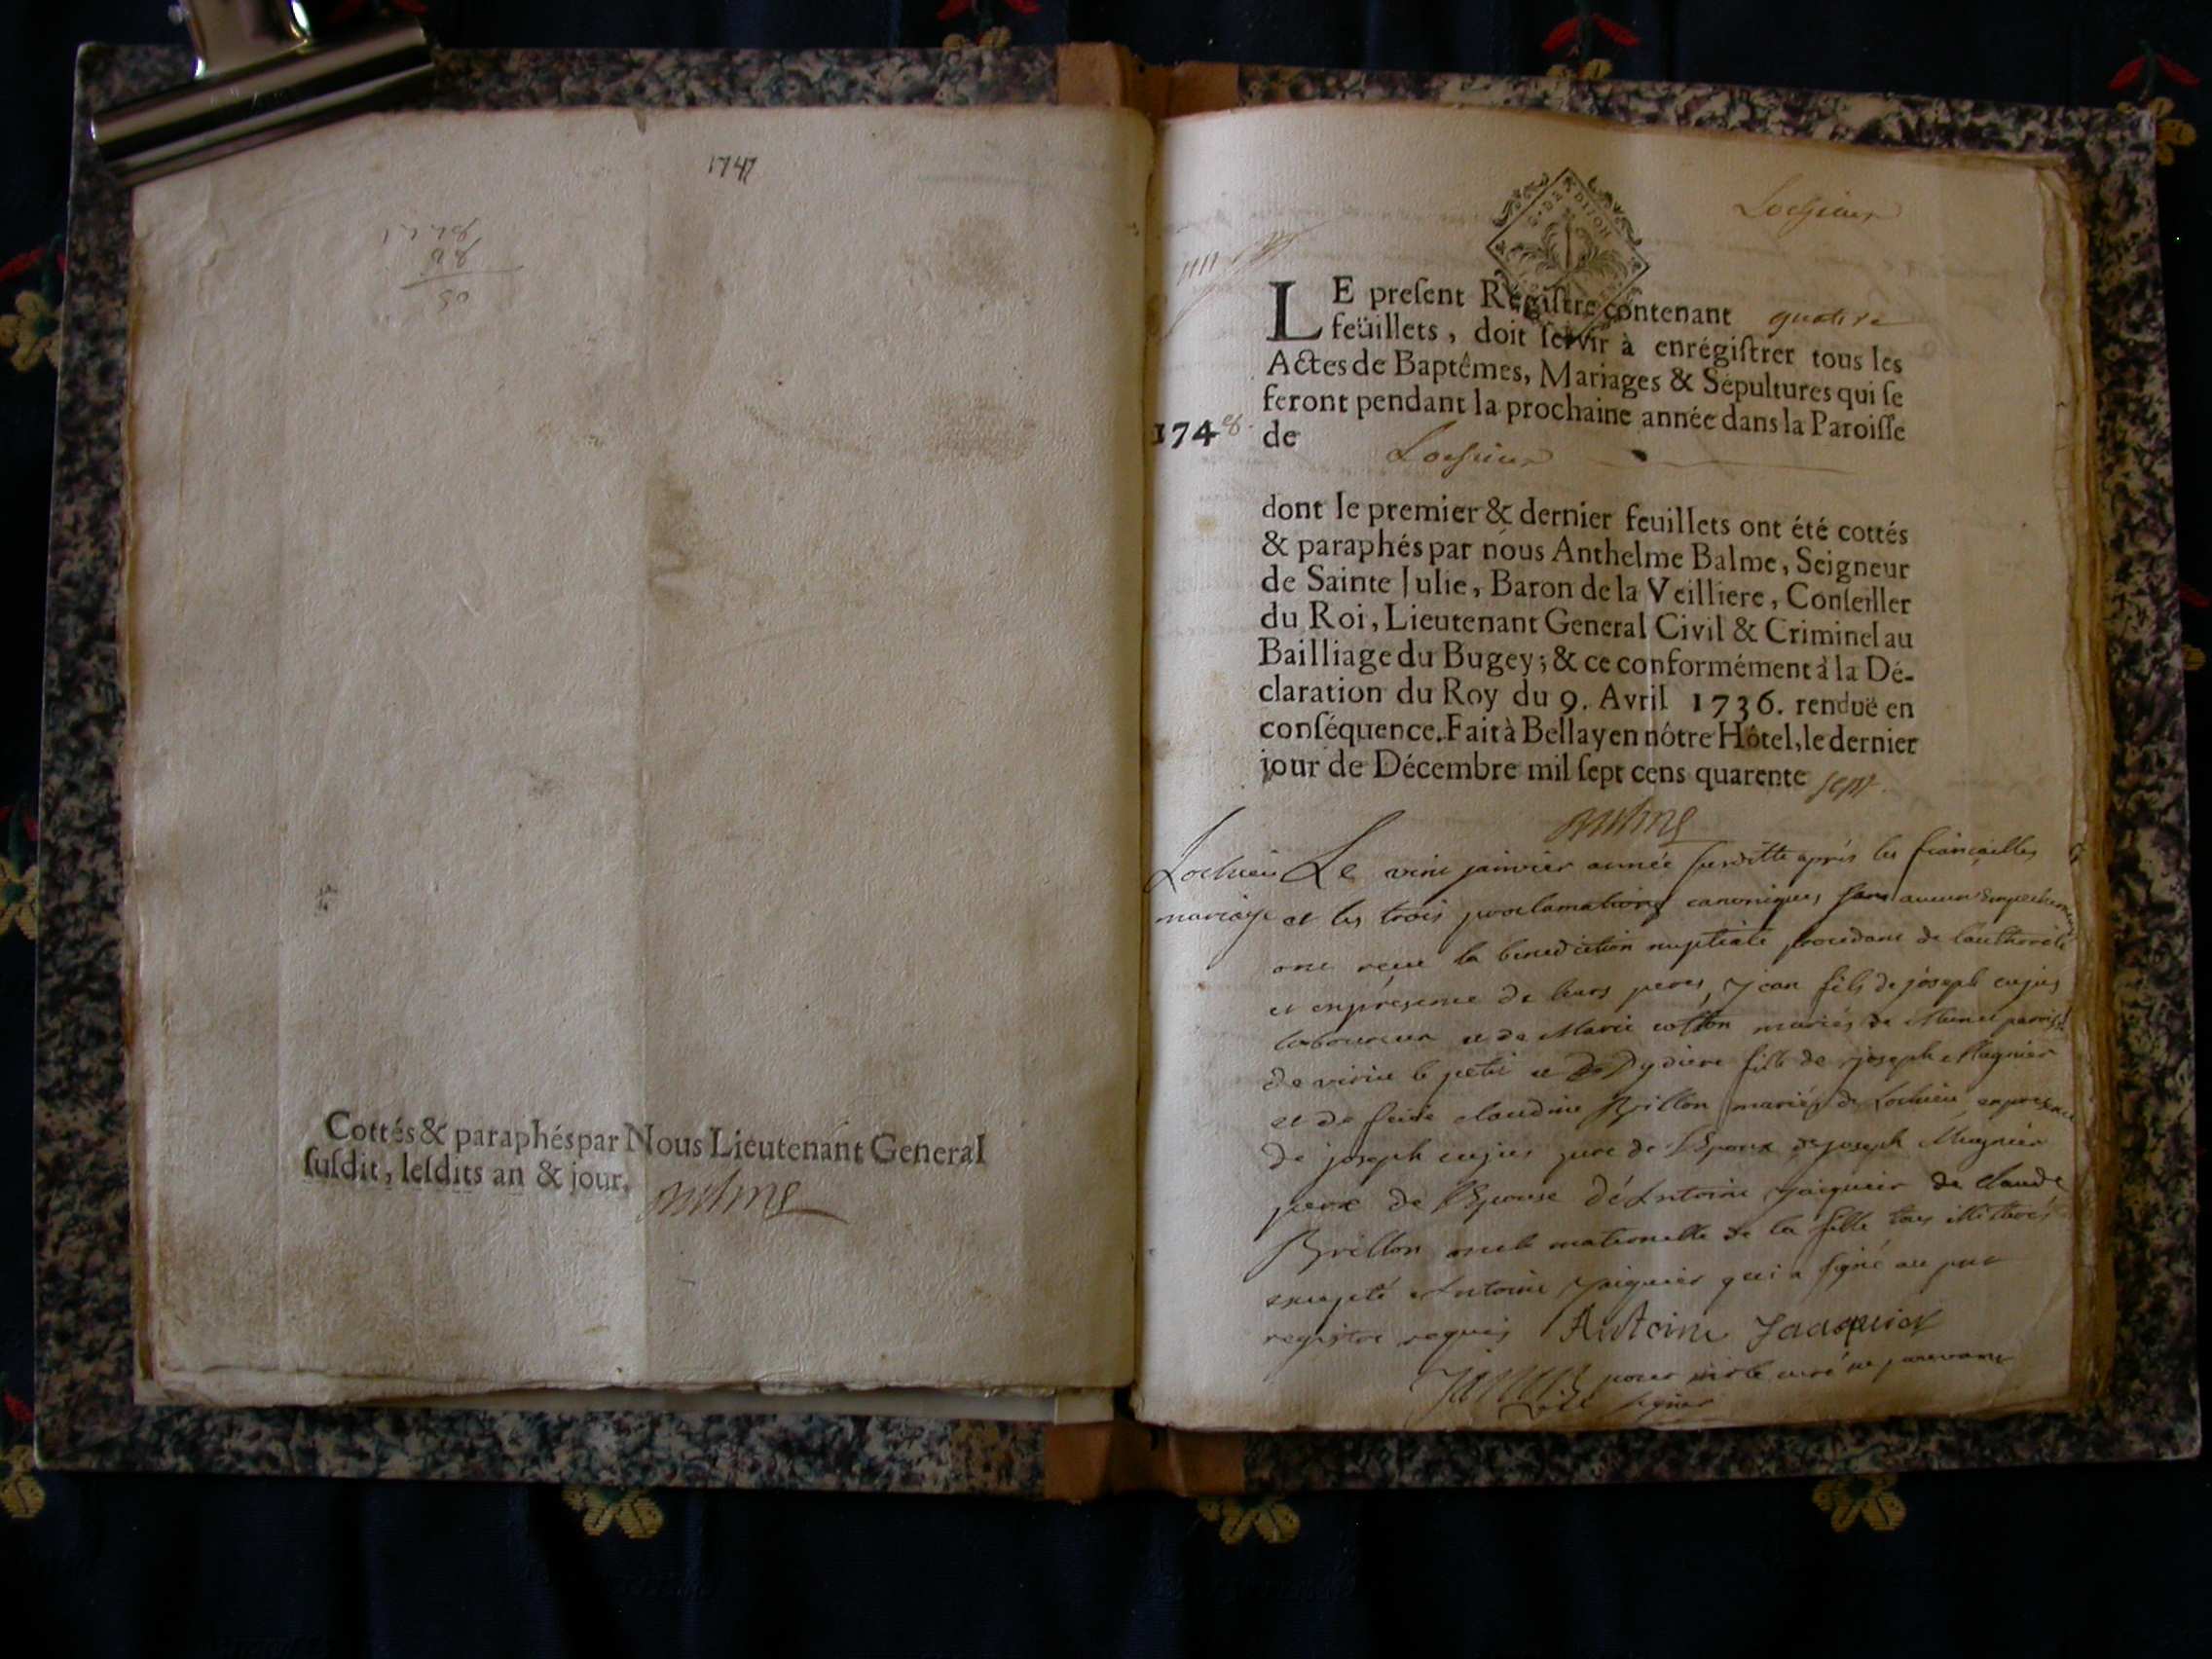 1747
Cottés & paraphés par Nous Lieutenant General
ſuſdit, leſdits an & jour.
Lochieu
G. DE DIJON
LE preſent Regiſtre contenant quatre
feüillets, doit ſervir à enrégiſtrer tous les
Actes de Baptêmes, Mariages & Sépultures qui ſe
feront pendant la prochaine année dans la Paroiſſe
1748. de Lochieu
dont le premier & dernier feuillets ont été cottés
& paraphés par nous Anthelme Balme, Seigneur
de Sainte Julie, Baron de la Veilliere, Conſeiller
du Roi, Lieutenant General Civil & Criminel au
Bailliage du Bugey; & ce conformément à la Dé-
claration du Roy du 9. Avril 1736. renduë en
conſéquence. Fait à Bellay en nôtre Hôtel, le dernier
jour de Décembre mil ſept cens quarente sept.
Lochieu Le janvier année susditte après les fiançailles
mariage et les trois proclamations canoniques sans aucun
ont reçue la benediction nuptiale procedant de lauthorité
et en présence de leurs peres, Jean fils de joseph cujus
laboureur et de Marie mariés de
de virieu le petit et Dydiere fille de joseph Mugnier
et de feüe claudine Brillon mariés de Lochieu en presence
de joseph cujus pere de l'Epoux de joseph Mugnier
pere de l'Epouse d'Antoine Jaiquier de claude
Brillon oncle maternelle de la fille tous illitterés
excepté Antoine Jaiquier qui a signé au
registre requis Antoine Jaaquier
pour le curé ne pouvant
signer